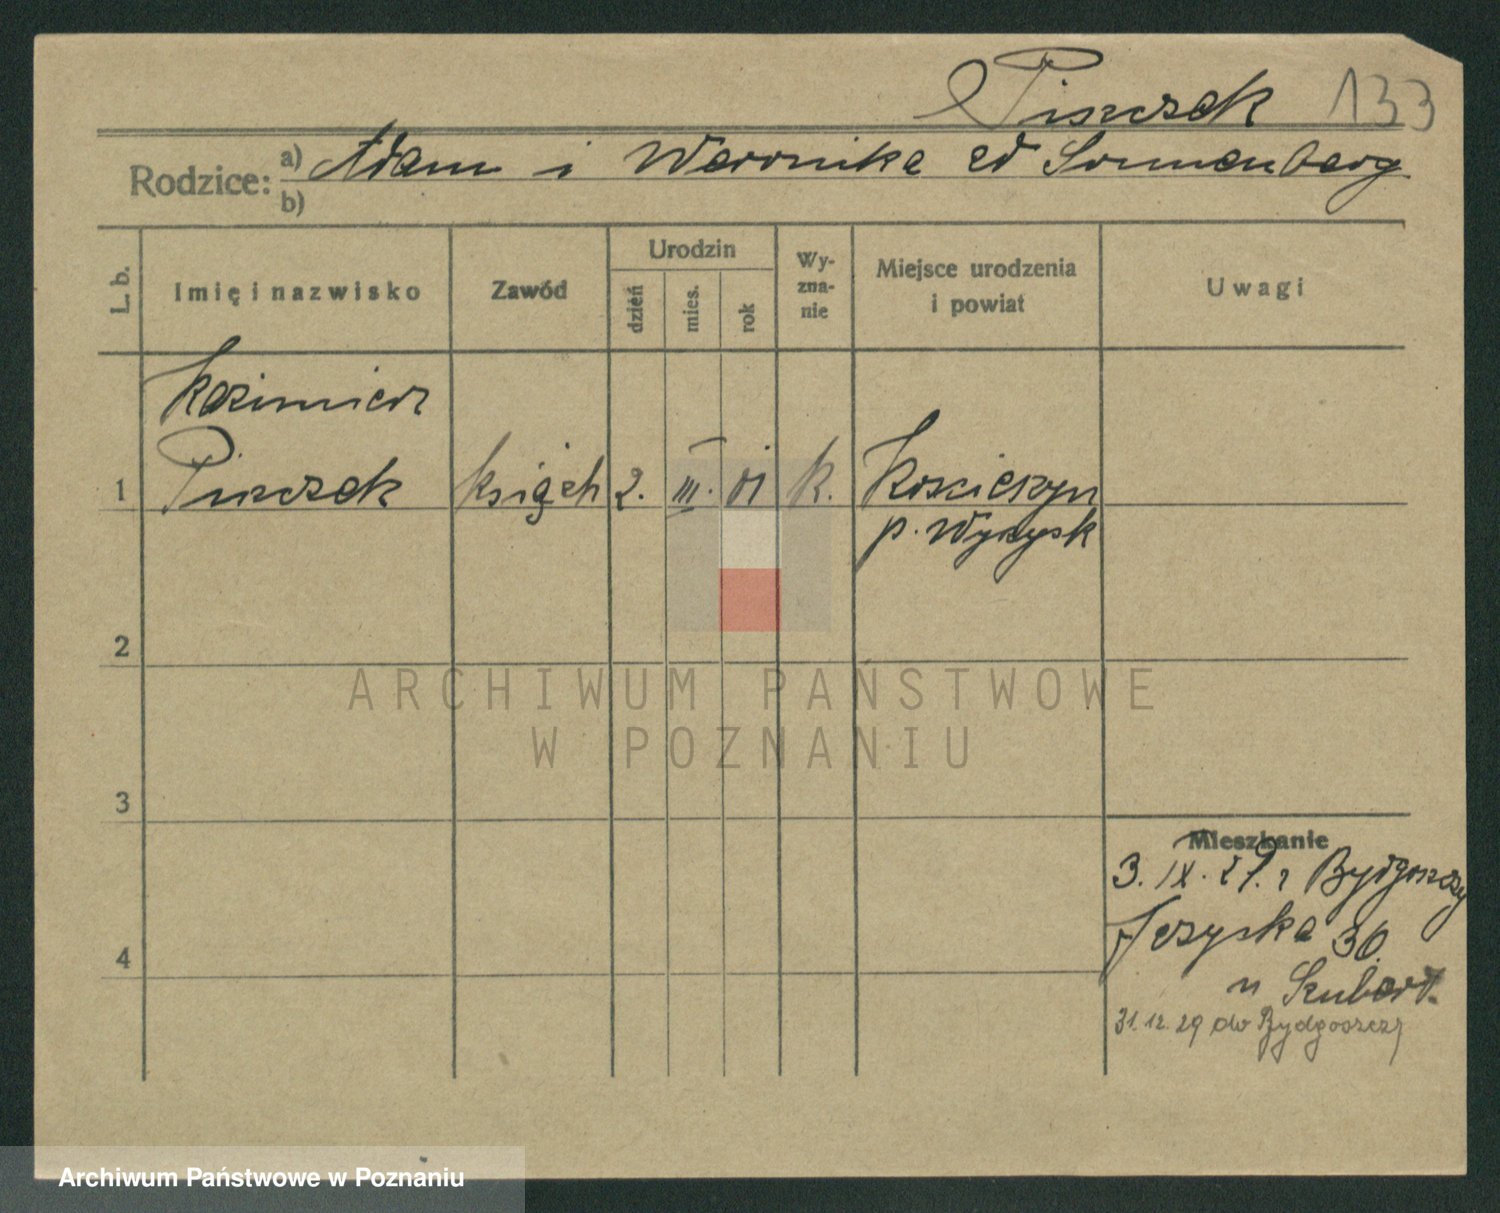 Piszczek 133
Rodzice: a) Adam i Weronika zd Sonnenberg
b)
L. b. Imię i nazwisko Zawód Urodzin dzień mies. rok Wyznanie Miejsce urodzenia i powiat Uwagi
Kazimierz
1 Piszczek książk 2. III. 01 k. Kościerzyn
p. Wyrzysk
2
3
4
Mieszkanie
3. IX. 29. z Bydgoszczy
Jeżycka 36
u Szubert.
31.12.29 do Bydgoszczy
ARCHIWUM PAŃSTWOWE
W POZNANIU
Archiwum Państwowe w Poznaniu